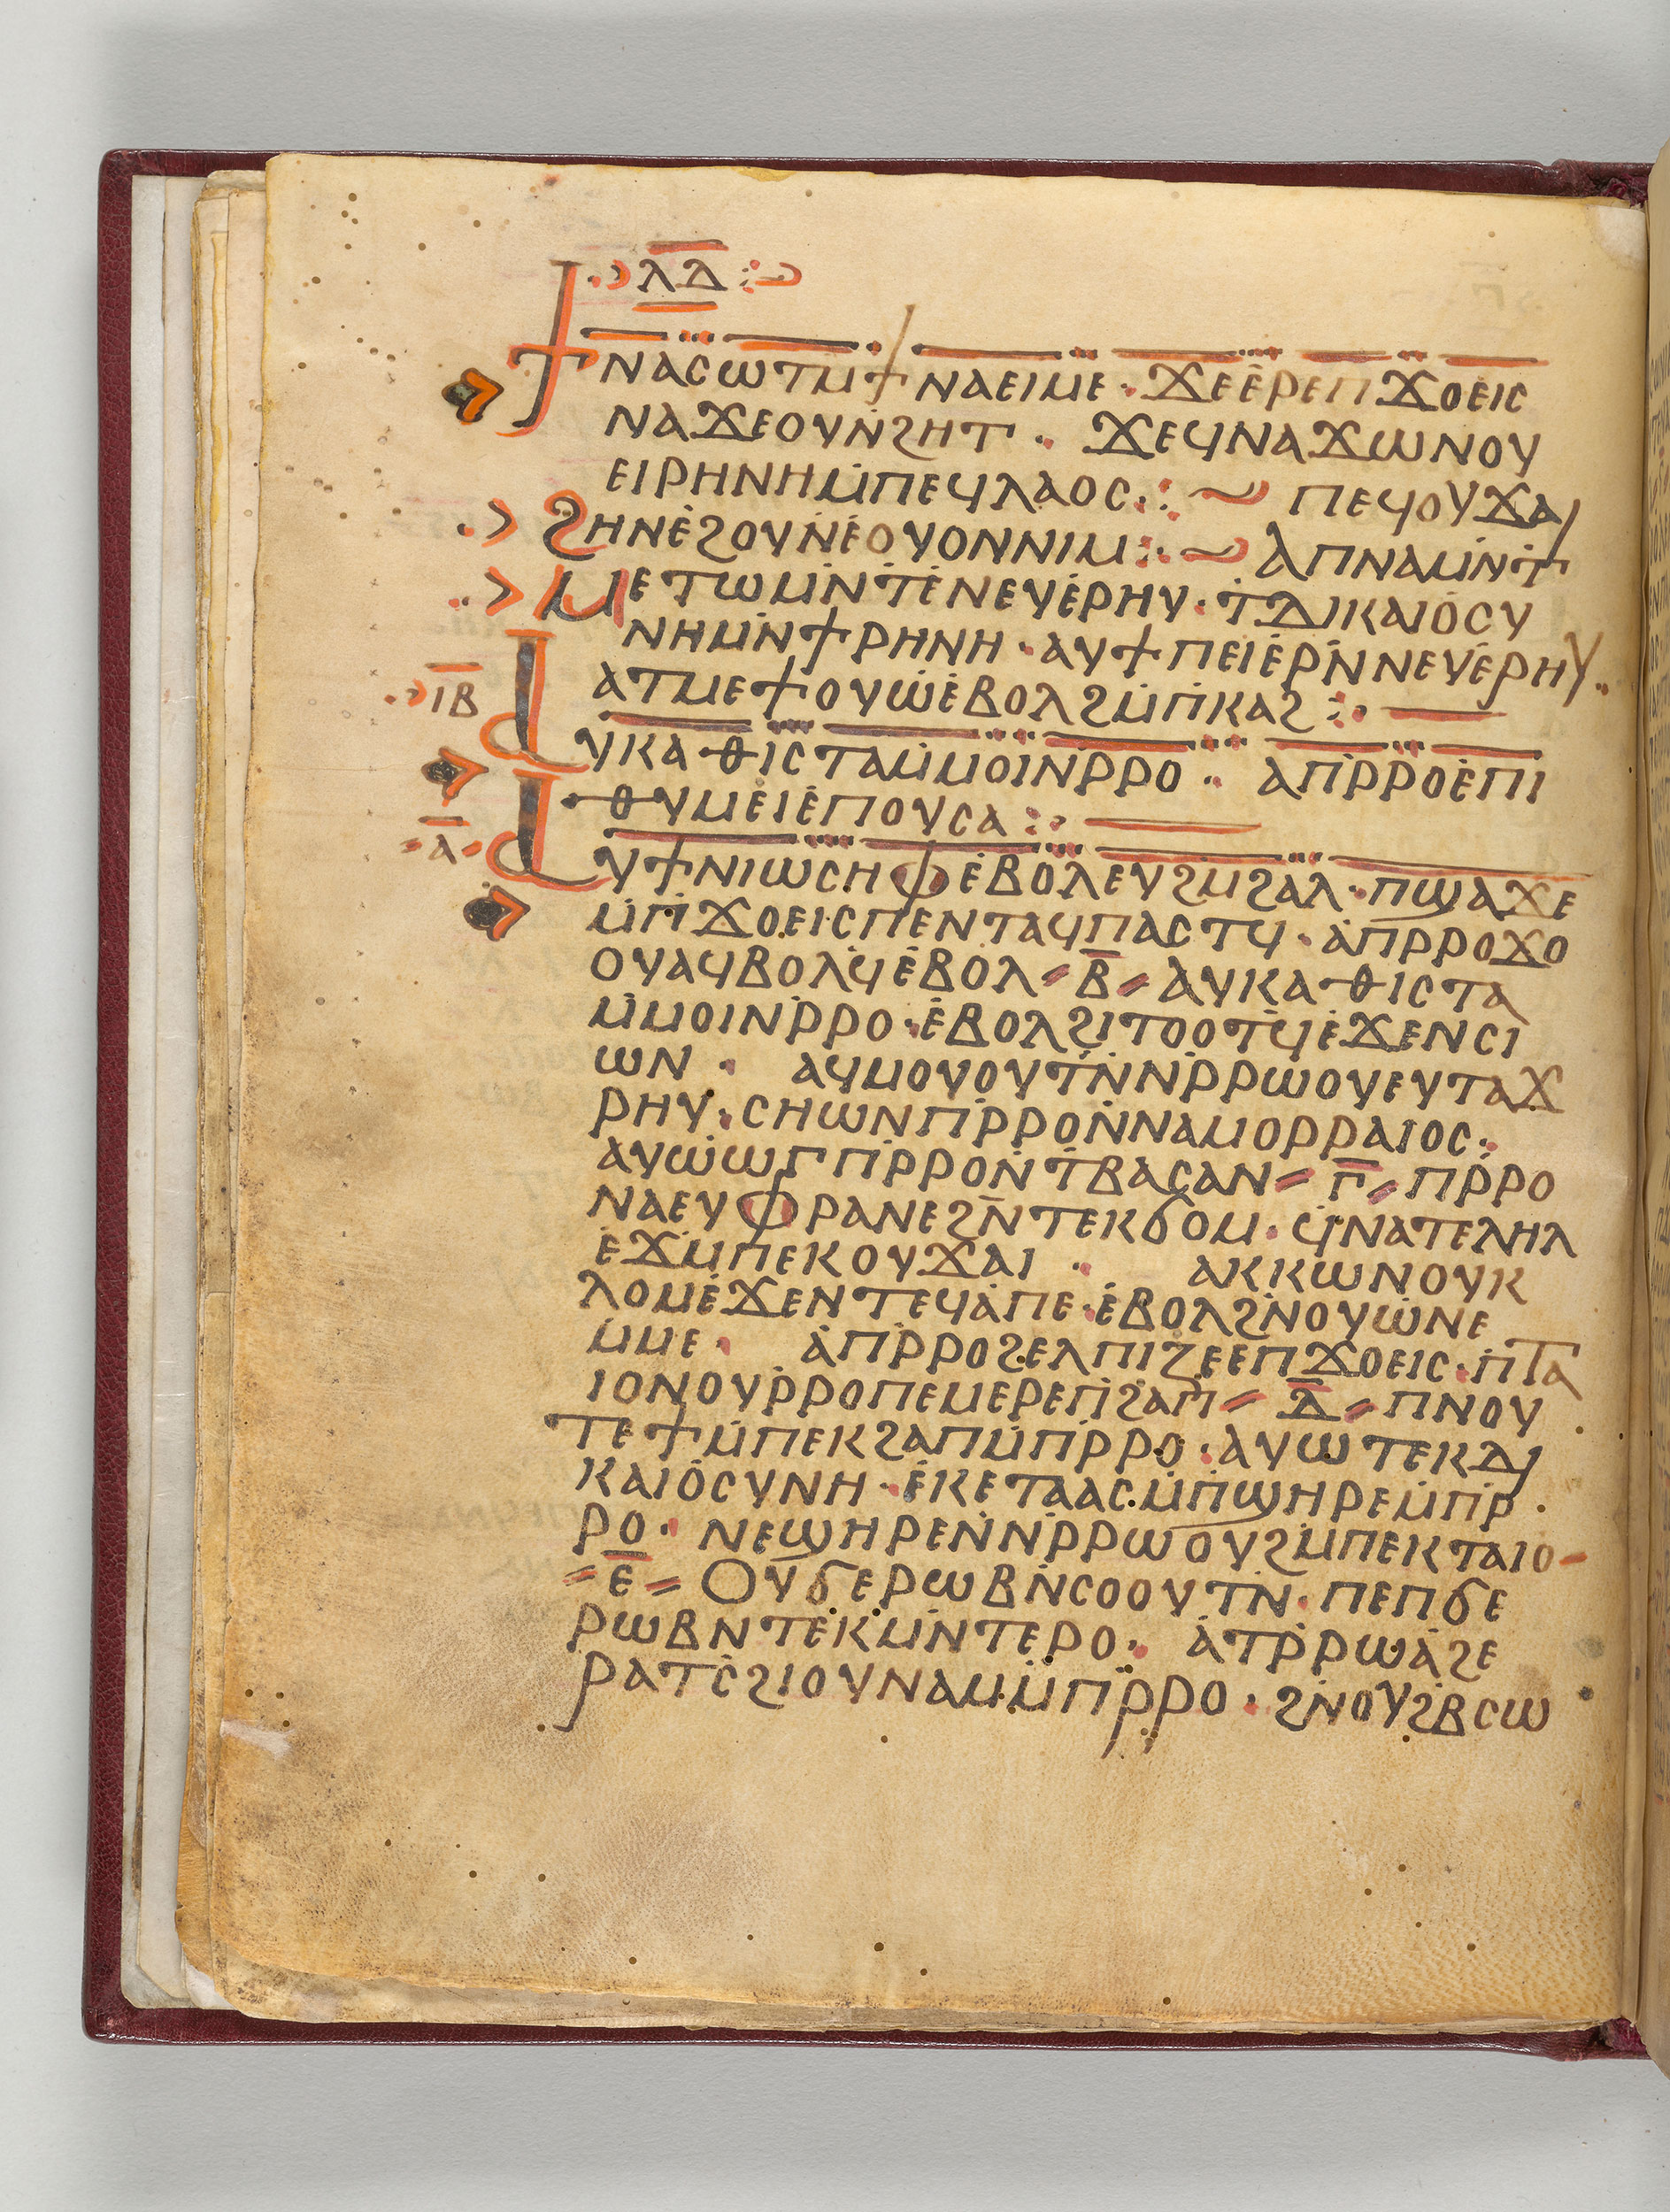 ⲗⲇ
ϯⲛⲁⲥⲱⲧⲙϯⲛⲁⲉⲓⲙⲉ · ϫⲉⲉ̇ⲣⲉⲡϫⲟⲉⲓⲥ
ⲛⲁϫⲉⲟⲩⲛ̇ϩⲏⲧ · ϫⲉϥⲛⲁϫⲱⲛⲟⲩ
ⲉⲓⲣⲏⲛⲏⲙ̇ⲡⲉϥⲗⲁⲟⲥ ⁘ ⲡⲉϥⲟⲩϫⲁⲓ
ϩⲏⲛⲉ̇ϩⲟⲩⲛ̇ⲉ̇ⲟⲩⲟⲛⲛⲓⲙ ⁘ ⲁⲡⲛⲁⲙⲛ̇ⲧ
ⲙⲉⲧⲱⲙⲛ̇ⲧⲉ̇ⲛⲉⲩⲉ̇ⲣⲏⲩ · ⲧ̇ⲇⲓⲕⲁⲓⲟ̇ⲥⲩ
ⲛⲏⲙⲛ̇ϯⲣⲏⲛⲏ · ⲁⲩϯⲡⲉⲓⲉ̇ⲣⲛ̇ⲛⲉⲩⲉ̇ⲣⲏⲩ ·
ⲓⲃ
ⲁⲧⲙⲉϯⲟⲩⲱ̇ⲉ̇ⲃⲟⲗϩⲙ̇ⲡ̇ⲕⲁϩ ⁘
ⲁⲩⲕⲁⲑⲓⲥⲧⲁⲙ̇ⲙⲟⲓ̇ⲛ̇ⲣⲣⲟ · ⲁⲡ̇ⲣⲣⲟⲉ̇ⲡⲓ
ⲑⲩⲙⲉⲓⲉ̇ⲡⲟⲩⲥⲁ ⁘
ⲁ
ⲁⲩϯⲛⲓⲱⲥⲏⲫⲉ̇ⲃⲟⲗⲉⲩϩⲙϩⲁⲗ · ⲡϣⲁϫⲉ
ⲙ̇ⲡ̇ϫⲟⲉⲓⲥⲡⲉⲛⲧⲁϥⲡⲁⲥⲧϥ · ⲁ̇ⲡⲣⲣⲟϫⲟ
ⲟⲩⲁϥⲃⲟⲗϥ̇ⲉ̇ⲃⲟⲗ ⸗ ⲃ̅ ⸗ ⲁⲩⲕⲁⲑⲓⲥⲧⲁ
ⲙ̇ⲙⲟⲓⲛ̇ⲣⲣⲟ · ⲉ̇ⲃⲟⲗϩⲓⲧⲟⲟⲧϥ̇ⲉ̇ϫⲉⲛⲥⲓ
ⲱⲛ · ⲁϥⲙⲟⲩⲟⲩⲧⲛ̇ⲛ̇ⲣⲣⲱⲟⲩⲉⲩⲧⲁϫ
ⲣⲏⲩ · ⲥⲏⲱⲛⲡ̇ⲣⲣⲟⲛ̇ⲛⲁⲙⲟⲣⲣⲁⲓⲟⲥ ·
ⲁⲩⲱ̇ⲱⲅⲡ̇ⲣⲣⲟⲛ̇ⲧ̇ⲃⲁⲥⲁⲛ ⸗ ⲅ̅ ⸗ ⲡⲣ̇ⲣⲟ
ⲛⲁⲉⲩⲫⲣⲁⲛⲉϩⲛ̅ⲧⲉⲕϭⲟⲙ · ϥⲛⲁⲧⲉⲗⲏⲗ
ⲉ̇ϫⲙ̇ⲡⲉⲕⲟⲩϫⲁⲓ · ⲁⲕⲕⲱⲛⲟⲩⲕ
ⲗⲟⲙⲉ̇ϫⲉⲛⲧⲉϥⲁ̇ⲡⲉ · ⲉ̇ⲃⲟⲗϩⲛ̇ⲟⲩⲱ̇ⲛⲉ
ⲙ̇ⲙⲉ · ⲁ̇ⲡ̇ⲣⲣⲟϩⲉⲗⲡⲓⲍⲉⲉⲡϫⲟⲉⲓⲥ · ⲡ̇ⲧⲁ
ⲓⲟⲛⲟⲩⲣ̇ⲣⲟⲡⲉⲙⲉⲣⲉⲡ̇ϩⲁⲡ ⸗ ⲇ̅ ⸗ ⲡⲛⲟⲩ
ⲧⲉϯⲙ̇ⲡⲉⲕϩⲁⲡⲙ̇ⲡ̇ⲣⲣⲟ · ⲁⲩⲱⲧⲉⲕⲇⲓ
ⲕⲁⲓⲟ̇ⲥⲩⲛⲏ · ⲉ̇ⲕⲉⲧⲁⲁⲥ · ⲙ̇ⲡ̇ϣⲏⲣⲉⲙ̇ⲡ̇ⲣ ·
ⲣⲟ · ⲛⲉϣⲏⲣⲉⲛ̇ⲛ̇ⲣⲣⲱⲟⲩϩⲙ̇ⲡⲉⲕⲧⲁⲓⲟ
⸗ ⲉ̅ ⸗ ⲟⲩϭⲉⲣⲱⲃⲛ̇ⲥⲟⲟⲩⲧⲛ̇ · ⲡⲉⲡϭⲉ
ⲣⲱⲃⲛⲧⲉ̇ⲕⲙⲛ̇ⲧⲉⲣⲟ · ⲁ̇ⲧⲣ̇ⲣⲱⲁ̇ϩⲉ
ⲣⲁⲧⲥ̇ϩⲓⲟⲩⲛⲁⲙⲙ̈ⲡⲣ̈ⲣⲟ · ϩⲛ̇ⲟⲩϩ̇ⲃⲥⲱ